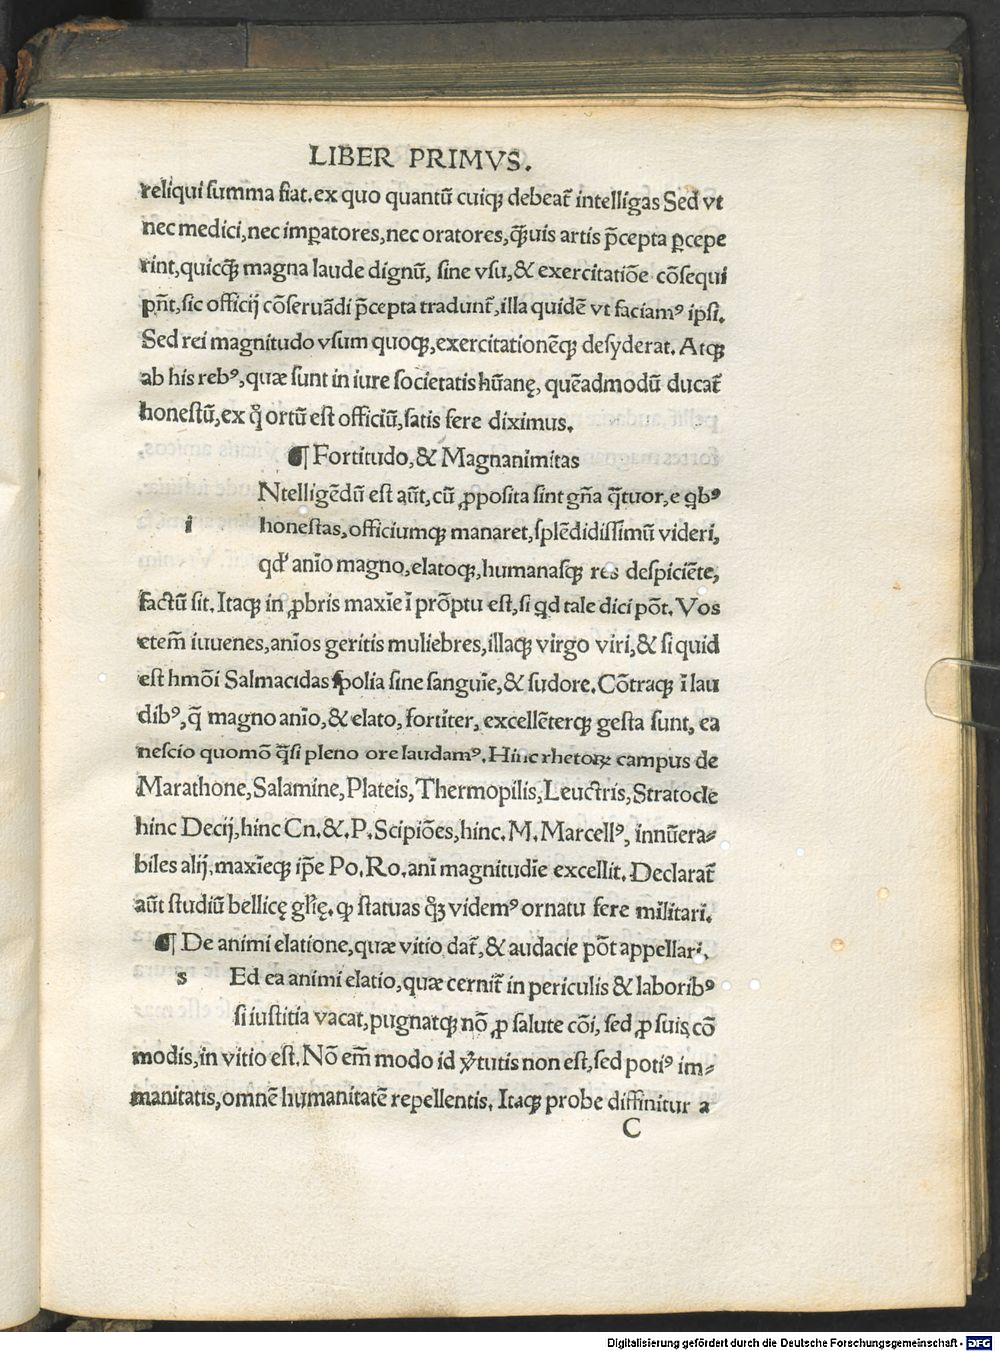 LIBER PRIMVS.
reliqui summa fiat. ex quo quantū cuiq; debeat̃ intelligas Sed vt
nec medici, nec imꝑatores, nec oratores, q̃uis artis p̃cepta ꝑcepe
rint, quicq̃ magna laude dignū, sine vsu, & exercitatiōe cōsequi
pñt, sic officij cōseruādi p̃cepta tradunt̃, illa quidē vt faciamꝰ ipsi.
Sed rei magnitudo vsum quoq;, exercitationēq; desyderat. Atq;
ab his rebꝰ, quæ sunt in iure societatis hūanę, quēadmodū ducat̃
honestū, ex q̊ ortū est officiū, satis fere diximus.
¶ Fortitudo, & Magnanimitas
i Ntelligēdū est aūt, cū ꝓposita sint gña q̃tuor, e qbꝰ
honestas, officiumq; manaret, splēdidissimū videri,
qđ anīo magno, elatoq;, humanasq; res despiciēte,
factū sit. Itaq; in ꝓbris maxīe ī prōptu est, si qd tale dici pōt. Vos
etem̄ iuuenes, anīos geritis muliebres, illaq; virgo viri, & si quid
est hmōi Salmacidas spolia sine sanguīe, & sudore. Cōtraq; ī lau
dibꝰ, q̄ magno anīo, & elato, fortiter, excellēterq; gesta sunt, ea
nescio quomō q̃si pleno ore laudamꝰ. Hinc rhetoꝝ campus de
Marathone, Salamine, Plateis, Thermopilis, Leuctris, Stratocle
hinc Decij, hinc Cn. &. P. Scipiōes, hinc. M. Marcellꝰ, innūera⸗
biles alij, maxīeq; ip̄e Po. Ro. anī magnitudīe excellit. Declarat̃
aūt studiū bellicę glīę. q; statuas q̊q; videmꝰ ornatu fere militari.
¶ De animi elatione, quæ vitio dat̃, & audacie pōt appellari.
s Ed ea animi elatio, quæ cernit̃ in periculis & laboribꝰ
si iustitia vacat, pugnatq; nō ꝓ salute cōi, sed ꝓ suis cō
modis, in vitio est. Nō em̄ modo id v̓tutis non est, sed potiꝰ im⸗
manitatis, omnē humanitatē repellentis. Itaq; probe diffinitur a
C
Digitalisierung gefördert durch die Deutsche Forschungsgemeinschaft - DFG